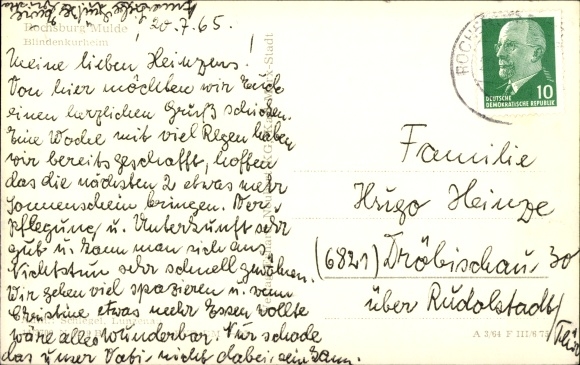 Rochsburg Mulde
Blindenkurheim
20.7.65.
Meine lieben Heinzens!
Von hier möchten wir Euch
einen herzlichen Gruß schicken.
Eine Woche mit viel Regen haben
wir bereits geschafft, hoffen
das die nächsten 2 etwas mehr
Sonnenschein bringen. Ver-
pflegung u. Unterkunft sehr
gut u. kann man sich ans
Nichtstun sehr schnell gewöhnen.
Wir gehen viel spazieren u. wenn
Christine etwas mehr Essen wollte
wäre alles Wunderbar. Nur schade
das unser Vati nicht dabei sein kann.
DEUTSCHE
DEMOKRATISCHE REPUBLIK
10
Familie
Hugo Heinze
(6821) Dröbischau 30
über Rudolstadt/
A 3/64 F III/6